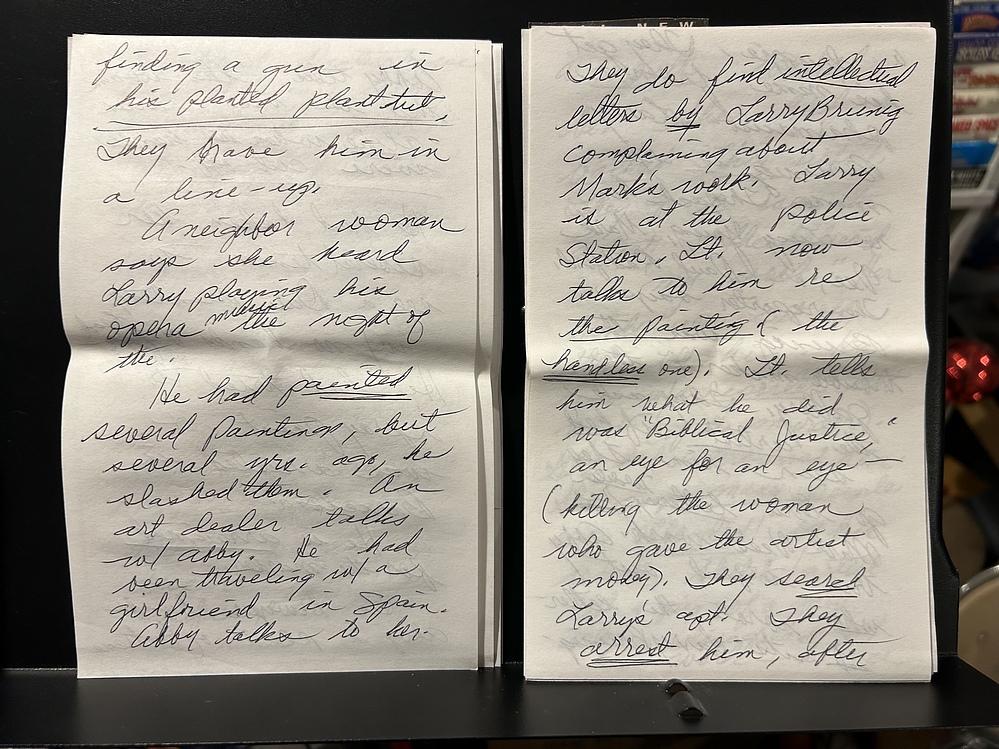 finding a gun in
his planted plant tut,
They have him in
a line-up.
A neighbor woman
says she heard
Larry playing his
opera music the night of
the.
He had painted
several paintings, but
several yrs. ago, he
slashed them. An
art dealer talks
w/ Abby. He had
been traveling w/ a
girlfriend in Spain.
Abby talks to her.
They do find intellectual
letters by Larry Brunig
complaining about
Mark's work. Larry
is at the police
Station. Lt. now
talks to him re
the painting (the
handless one). Lt. tells
him what he did
was "Biblical Justice,"
an eye for an eye —
(killing the woman
who gave the artist
money). They search
Larry's apt. They
arrest him, after